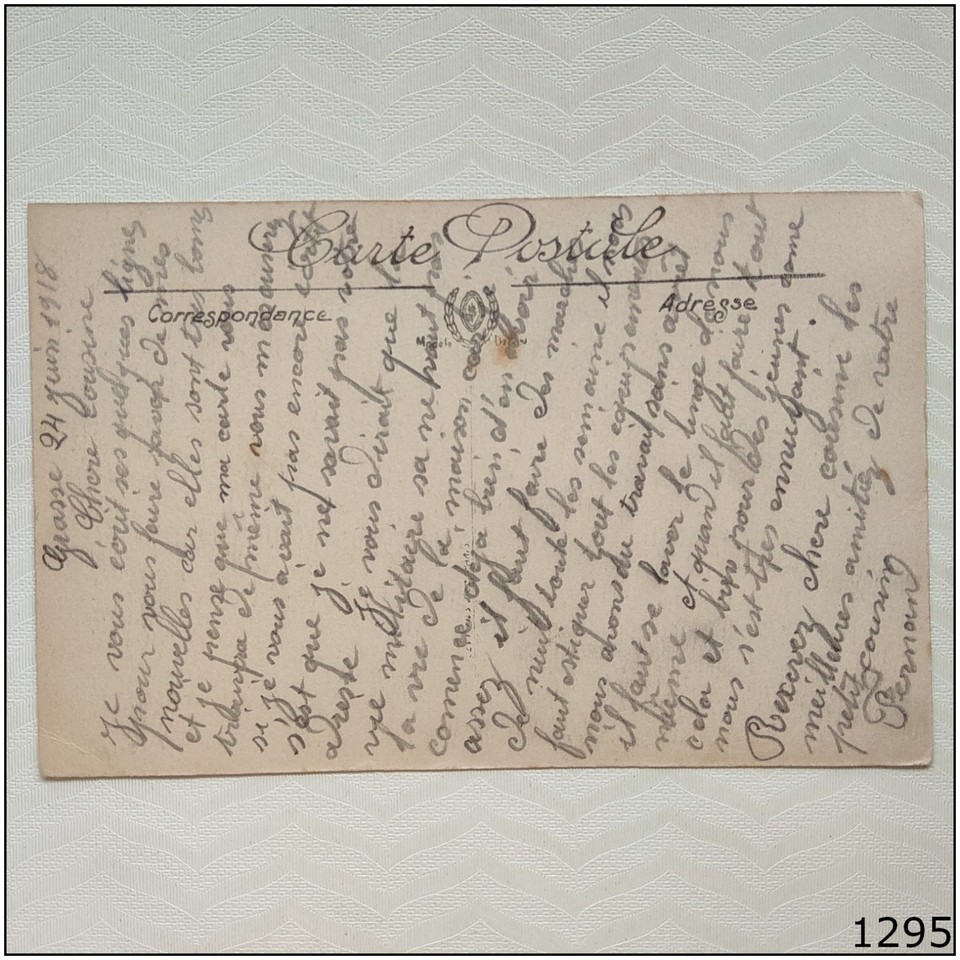 Carte Postale
Correspondance
Adresse
Grasse 24 juin 1918
Chere Cousine
Je vous écrit ses quelques ligns
pour vous faire savoir de mes
nouvelles car elles sont tres bons
et je pense que ma carte vous
trouvra de même vous m'
si je vous avait pas encore écrit
s'est que je ne savait pas votre
adresse Je vous dirait que la
vie militaire sa ne vaut pas
la vie de la maison car je
commence deja bien d'en avoir
assez il faut faire des marches
de nuit toute les semaine il nous
faut astiquer tout les équipements
nous avons du travail sans arret
il faut se laver le linge de nous
même et quand il faut faire tout
cela et bien pour les jeunes come
nous s'est tres ennuyant.
Recevez chere cousine les
meilleures amitiéz de votre
petit cousin
Fernand
1295